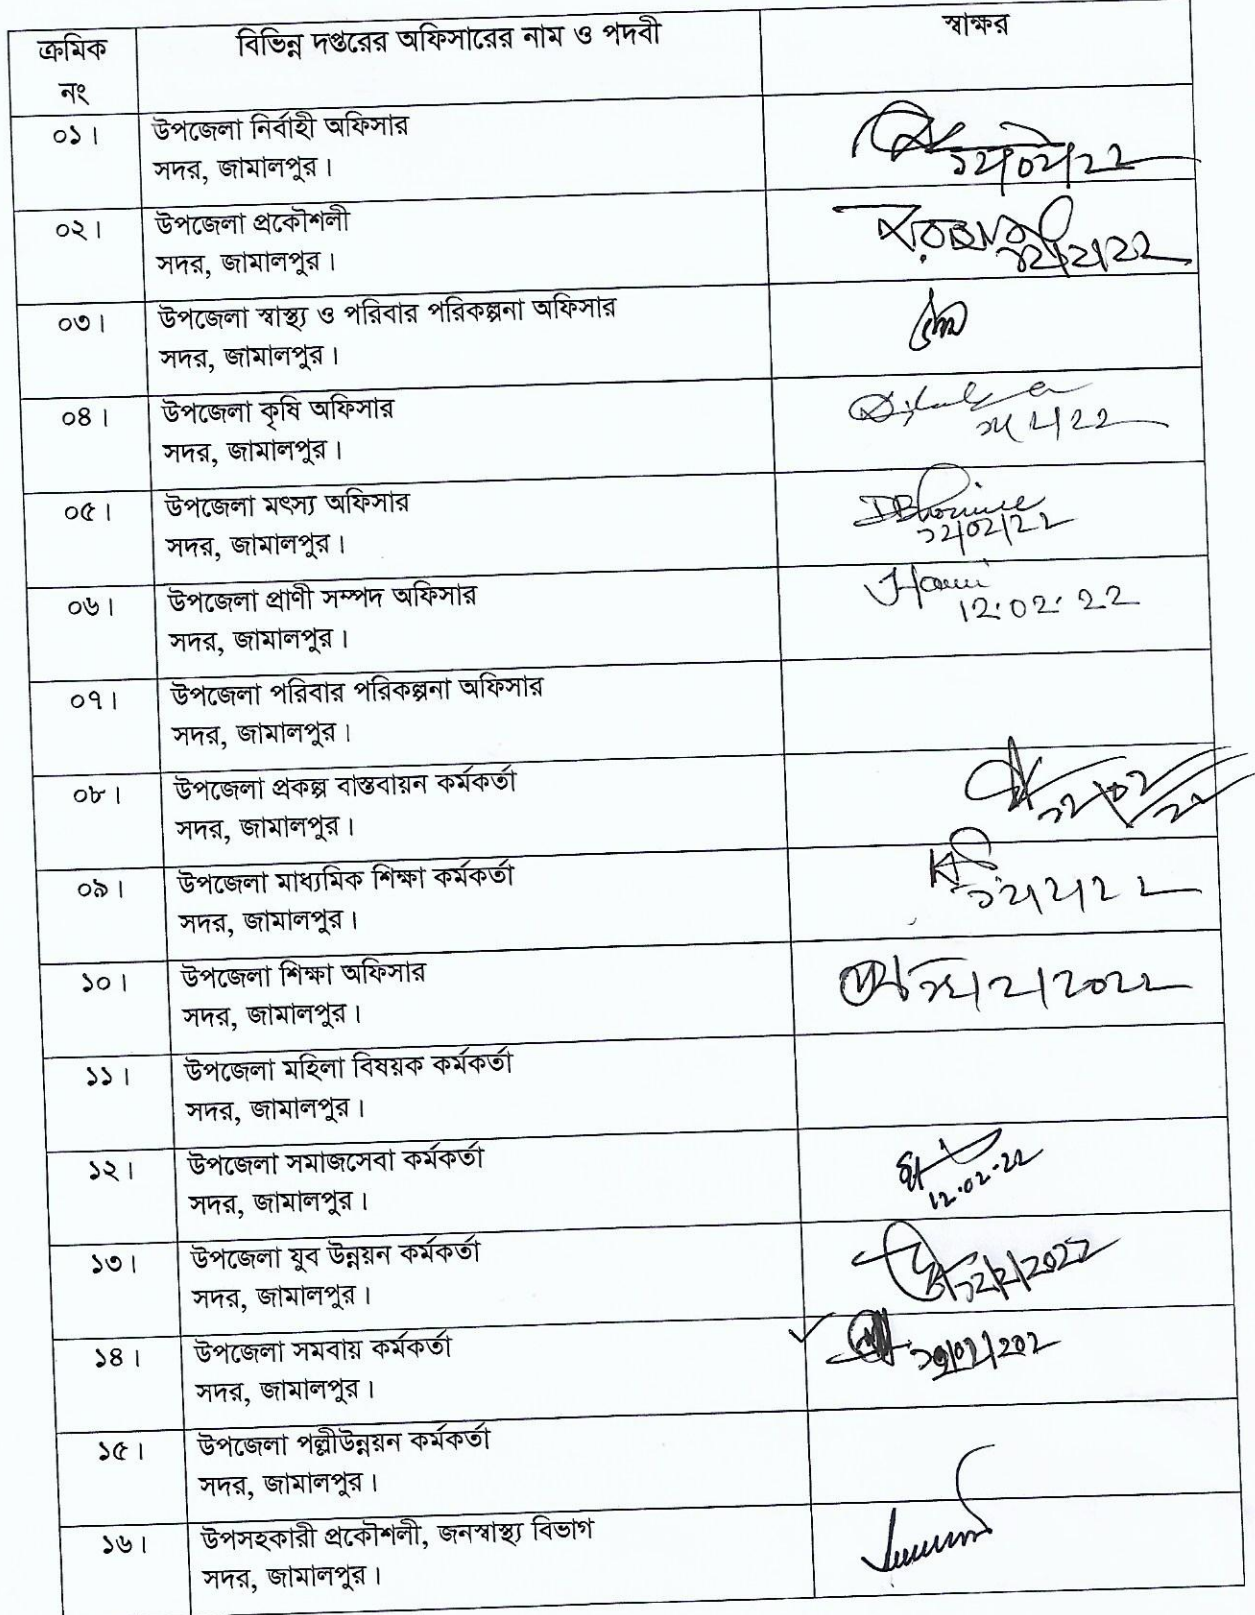 ক্রমিক
নং
বিভিন্ন দপ্তরের অফিসারের নাম ও পদবী
স্বাক্ষর
০১।
উপজেলা নির্বাহী অফিসার
সদর, জামালপুর।
১২/০২/২২
০২।
উপজেলা প্রকৌশলী
সদর, জামালপুর।
০৩।
উপজেলা স্বাস্থ্য ও পরিবার পরিকল্পনা অফিসার
সদর, জামালপুর।
০৪।
উপজেলা কৃষি অফিসার
সদর, জামালপুর।
০৫।
উপজেলা মৎস্য অফিসার
সদর, জামালপুর।
১২/০২/২২
০৬।
উপজেলা প্রাণী সম্পদ অফিসার
সদর, জামালপুর।
12.02.22
০৭।
উপজেলা পরিবার পরিকল্পনা অফিসার
সদর, জামালপুর।
০৮।
উপজেলা প্রকল্প বাস্তবায়ন কর্মকর্তা
সদর, জামালপুর।
০৯।
উপজেলা মাধ্যমিক শিক্ষা কর্মকর্তা
সদর, জামালপুর।
১০।
উপজেলা শিক্ষা অফিসার
সদর, জামালপুর।
১১।
উপজেলা মহিলা বিষয়ক কর্মকর্তা
সদর, জামালপুর।
১২।
উপজেলা সমাজসেবা কর্মকর্তা
সদর, জামালপুর।
12.02.22
১৩।
উপজেলা যুব উন্নয়ন কর্মকর্তা
সদর, জামালপুর।
১৪।
উপজেলা সমবায় কর্মকর্তা
সদর, জামালপুর।
১৫।
উপজেলা পল্লীউন্নয়ন কর্মকর্তা
সদর, জামালপুর।
১৬।
উপসহকারী প্রকৌশলী, জনস্বাস্থ্য বিভাগ
সদর, জামালপুর।